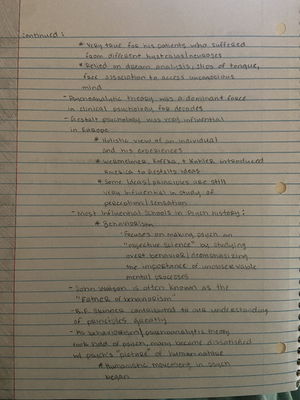 continued:
* Very true for his patients who suffered
from different hysterias/neuroses
* Relied on dream analysis, slips of tongue,
free association to access unconscious
mind
- Psychoanalytic theory was a dominant force
in clinical psychology for decades
- Gestalt psychology was very influential
in Europe
* Holistic view of an individual
and his experiences
* Wertheimer, Koffka & Kohler introduced
America to Gestalt ideas
* Some ideas/principles are still
very influential in study of
perception/sensation
- Most influential schools in psych history:
* Behaviorism
- Focuses on making psych an
"objective science" by studying
overt behavior/deemphasizing
the importance of unobservable
mental processes
- John Watson is often known as the
"Father of
- B.F. Skinner contributed to our understanding
of principles greatly
- As behaviorism/psychoanalytic theory
took hold of psych, many became dissatisfied
w/ psych's "picture" of human nature
* Humanistic movement in psych
began